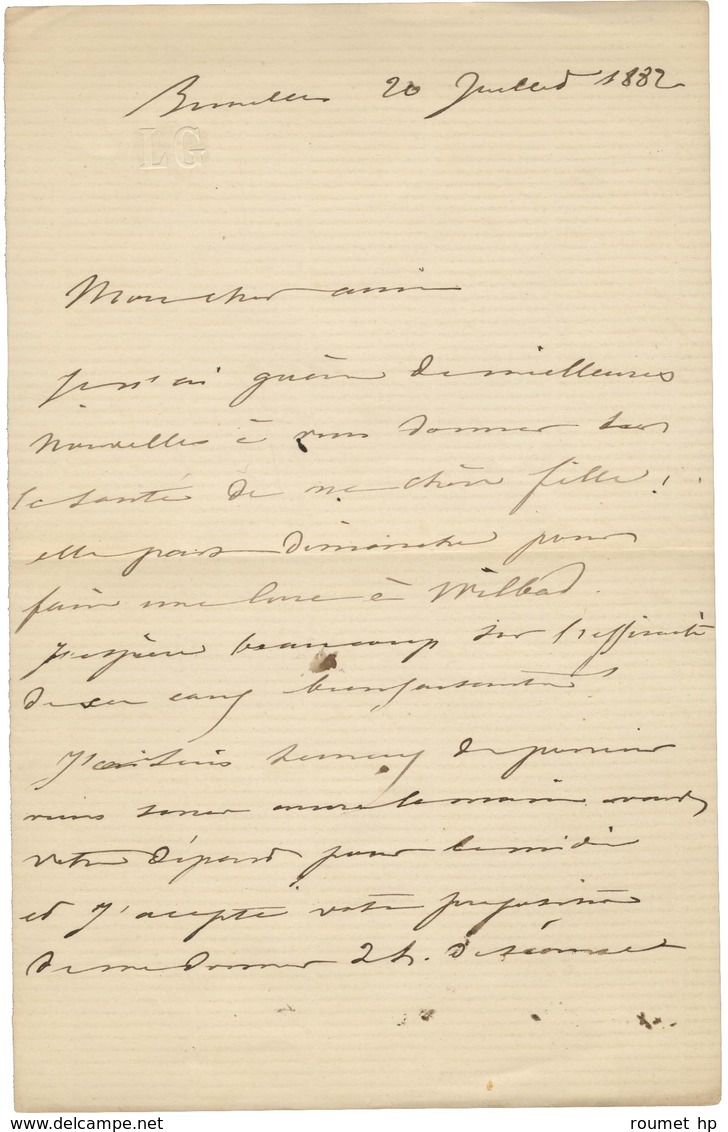 Bruxelles 20 Juillet 1882
LG
Mon cher ami
Je n'ai guère de meilleures
nouvelles à vous donner sur
la santé de ma chère fille,
elle part dimanche pour
faire une cure à Wilbad.
J'espère beaucoup sur l'efficacité
de ses eaux bienfaisantes
de pouvoir
vous serrer encore la main avant
votre départ pour le midi
et j'accepte votre proposition
de me donner 24 h.
www.delcampe.net
roumet hp